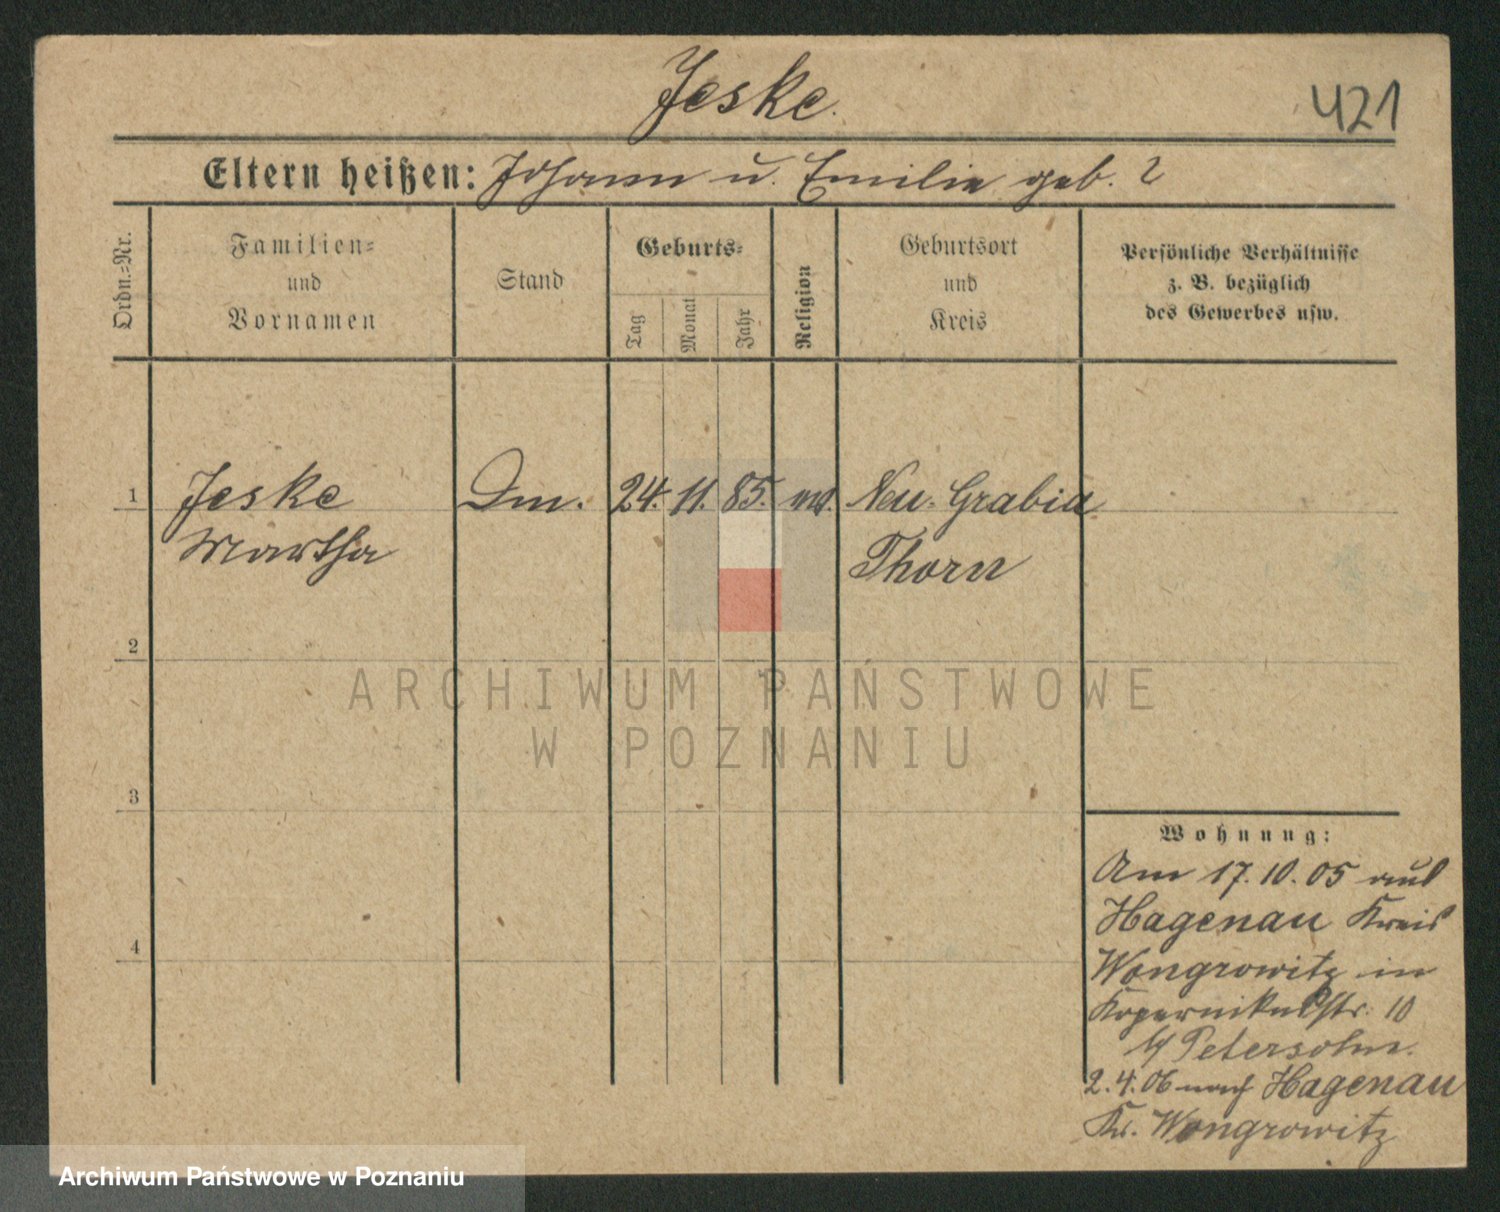 Jeske.
421
Eltern heißen: Johann u. Emilie geb. ?
Ordn.=Nr.
Familien=
und
Vornamen
Stand
Geburts=
Tag
Monat
Jahr
Religion
Geburtsort
und
Kreis
Persönliche Verhältnisse
z. B. bezüglich
des Gewerbes usw.
1 Jeske 24. 11. 85. Neu-Grabia
Martha Thorn
2
3
4
ARCHIWUM PAŃSTWOWE
W POZNANIU
Wohnung:
Am 17.10.05 aus
Hagenau Kreis
Wongrowitz in
Kopernikusstr. 10
b/ Petersohn.
2.4.06 nach Hagenau
Kr. Wongrowitz
Archiwum Państwowe w Poznaniu